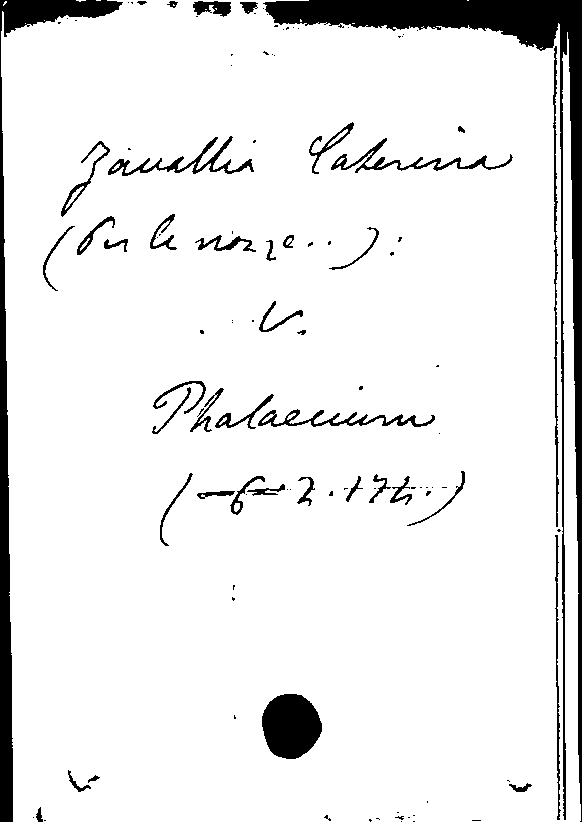 Zavallia Caterina
(Per le nozze..):
V.
Phalaecium
(-6-2.174.)